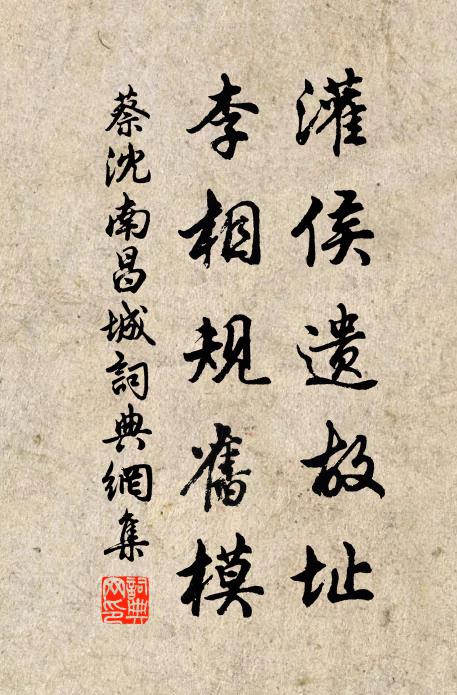 灌侯遗故址
李相規舊模
蔡沈南昌城詞典網集
詞典网印